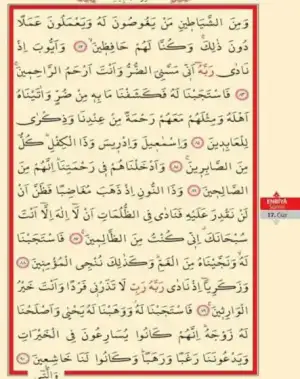 وَمِنَ الشَّيَاطِينِ مَنْ يَغُوصُونَ لَهُ وَيَعْمَلُونَ عَمَلًا
دُونَ ذٰلِكَۚ وَكُنَّا لَهُمْ حَافِظِينَۙ ﴿٨٢﴾ وَاَيُّوبَ اِذْ
نَادٰى رَبَّهُٓ اَنّ۪ي مَسَّنِيَ الضُّرُّ وَاَنْتَ اَرْحَمُ الرَّاحِمِينَۚ
﴿٨٣﴾ فَاسْتَجَبْنَا لَهُ فَكَشَفْنَا مَا بِهِ مِنْ ضُرٍّ وَاٰتَيْنَاهُ
اَهْلَهُ وَمِثْلَهُمْ مَعَهُمْ رَحْمَةً مِنْ عِنْدِنَا وَذِكْرٰى
لِلْعَابِدِينَ ﴿٨٤﴾ وَاِسْمٰعِيلَ وَاِدْرِيسَ وَذَا الْكِفْلِۜ كُلٌّ
مِنَ الصَّابِرِينَۚ ﴿٨٥﴾ وَاَدْخَلْنَاهُمْ ف۪ي رَحْمَتِنَاۜ اِنَّهُمْ مِنَ
الصَّالِحِينَ ﴿٨٦﴾ وَذَا النُّونِ اِذْ ذَهَبَ مُغَاضِبًا فَظَنَّ اَنْ
لَنْ نَقْدِرَ عَلَيْهِ فَنَادٰى فِي الظُّلُمَاتِ اَنْ لَٓا اِلٰهَ اِلَّٓا اَنْتَ
سُبْحَانَكَ اِنّ۪ي كُنْتُ مِنَ الظَّالِمِينَۚ ﴿٨٧﴾ فَاسْتَجَبْنَا
لَهُ وَنَجَّيْنَاهُ مِنَ الْغَمِّۜ وَكَذٰلِكَ نُنْجِي الْمُؤْمِنِينَ ﴿٨٨﴾
وَزَكَرِيَّٓا اِذْ نَادٰى رَبَّهُ رَبِّ لَا تَذَرْن۪ي فَرْدًا وَاَنْتَ خَيْرُ
الْوَارِثِينَۚ ﴿٨٩﴾ فَاسْتَجَبْنَا لَهُ وَوَهَبْنَا لَهُ يَحْيٰى وَاَصْلَحْنَا
لَهُ زَوْجَهُۜ اِنَّهُمْ كَانُوا يُسَارِعُونَ فِي الْخَيْرَاتِ
وَيَدْعُونَنَا رَغَبًا وَرَهَبًاۜ وَكَانُوا لَنَا خَاشِعِينَ ﴿٩٠﴾
وَالَّت۪ٓي
ENBİYÂ
Sûresi
17. Cüz